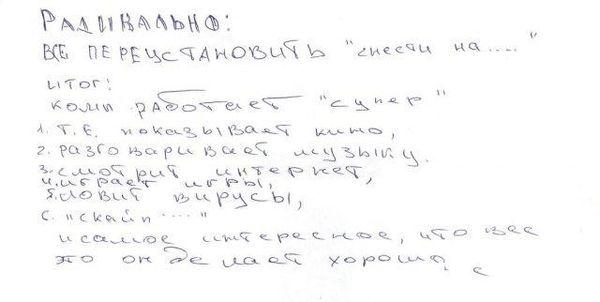 РАДИКАЛЬНО:
ВСЕ ПЕРЕУСТАНОВИТЬ "снести на....."
ИТОГ:
КОМП РАБОТАЕТ "СУПЕР"
1. Т.Е. показывает кино,
2. разговаривает музыку.
3. смотрит интернет,
4. играет игры,
5. ловит вирусы,
6. "скайп ....."
и самое интересное, что все
это он делает хорошо,